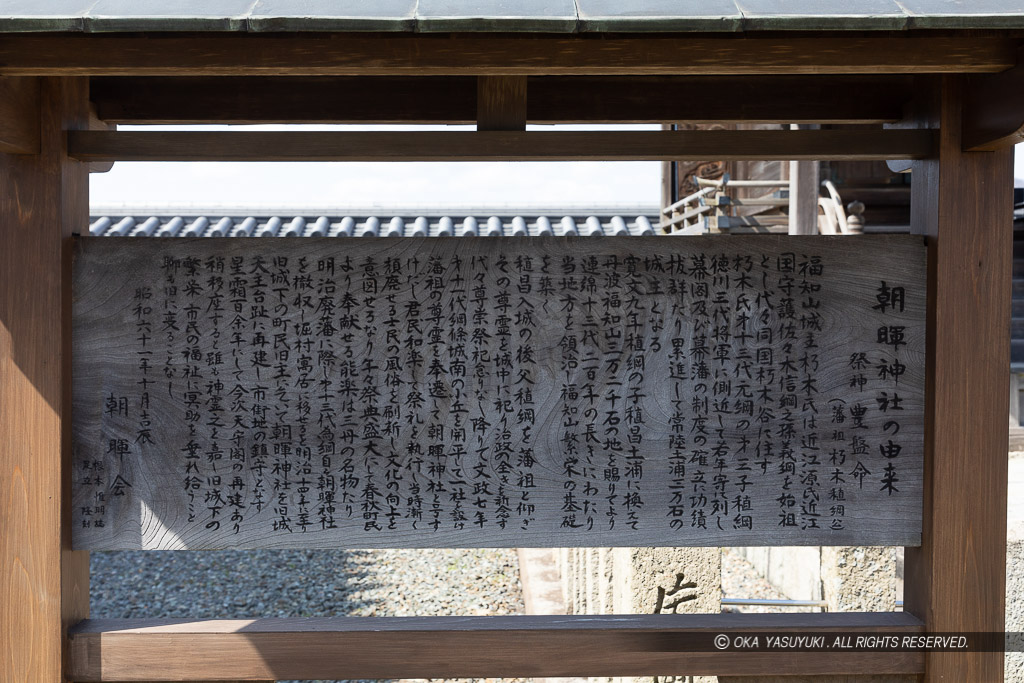 朝暉神社の由来
祭神 豊盤命
(藩祖朽木稙綱公)
福知山城主朽木氏は近江源氏近江
国守護佐々木信綱之孫義綱を始祖
とし代々同国朽木谷に住す
朽木氏才十三代元綱の才三子稙綱
徳川三代将軍に側近して若年寄に列し
幕閣及び幕藩の制度の確立に功績
抜群たり累進して常陸土浦三万石の
城主となる
寛文九年稙綱の子稙昌土浦に換えて
丹波福知山三万二千石の地を賜りてより
連綿十三代二百年の長きにわたり
当地方を領治し福知山繁栄の基礎
を築く
稙昌入城の後父稙綱を藩祖と仰ぎ
その尊霊を城中に祀り治政の全きを祈念す
代々尊崇祭祀怠りなし降りて文政七年
才十一代綱條城南の小丘を開平して一社を設け
藩祖の尊霊を奉遷して朝暉神社と号す
けだし君民和楽して祭礼を執行し当時漸く
頽廃せる士民の風俗を刷新し文化の向上を
意図せるなり年々祭典盛大にて春秋町民
より奉献せる能楽は三丹の名物たり
明治廃藩に際し才十三代為綱自ら朝暉神社
を撤収し堀村寓居に移せるを明治十四年に至り
旧城下の町民旧主に乞いて朝暉神社を旧城
天主台趾に再建し市街地の鎮守となす
星霜百余年にして今次天守閣の再建あり
稍移座すと雖も神霊之を嘉し旧城下の
繁栄 市民の福祉に冥助を垂れ給うこと
聊も旧に変ることなし
昭和六十一年十月吉辰
朝暉会